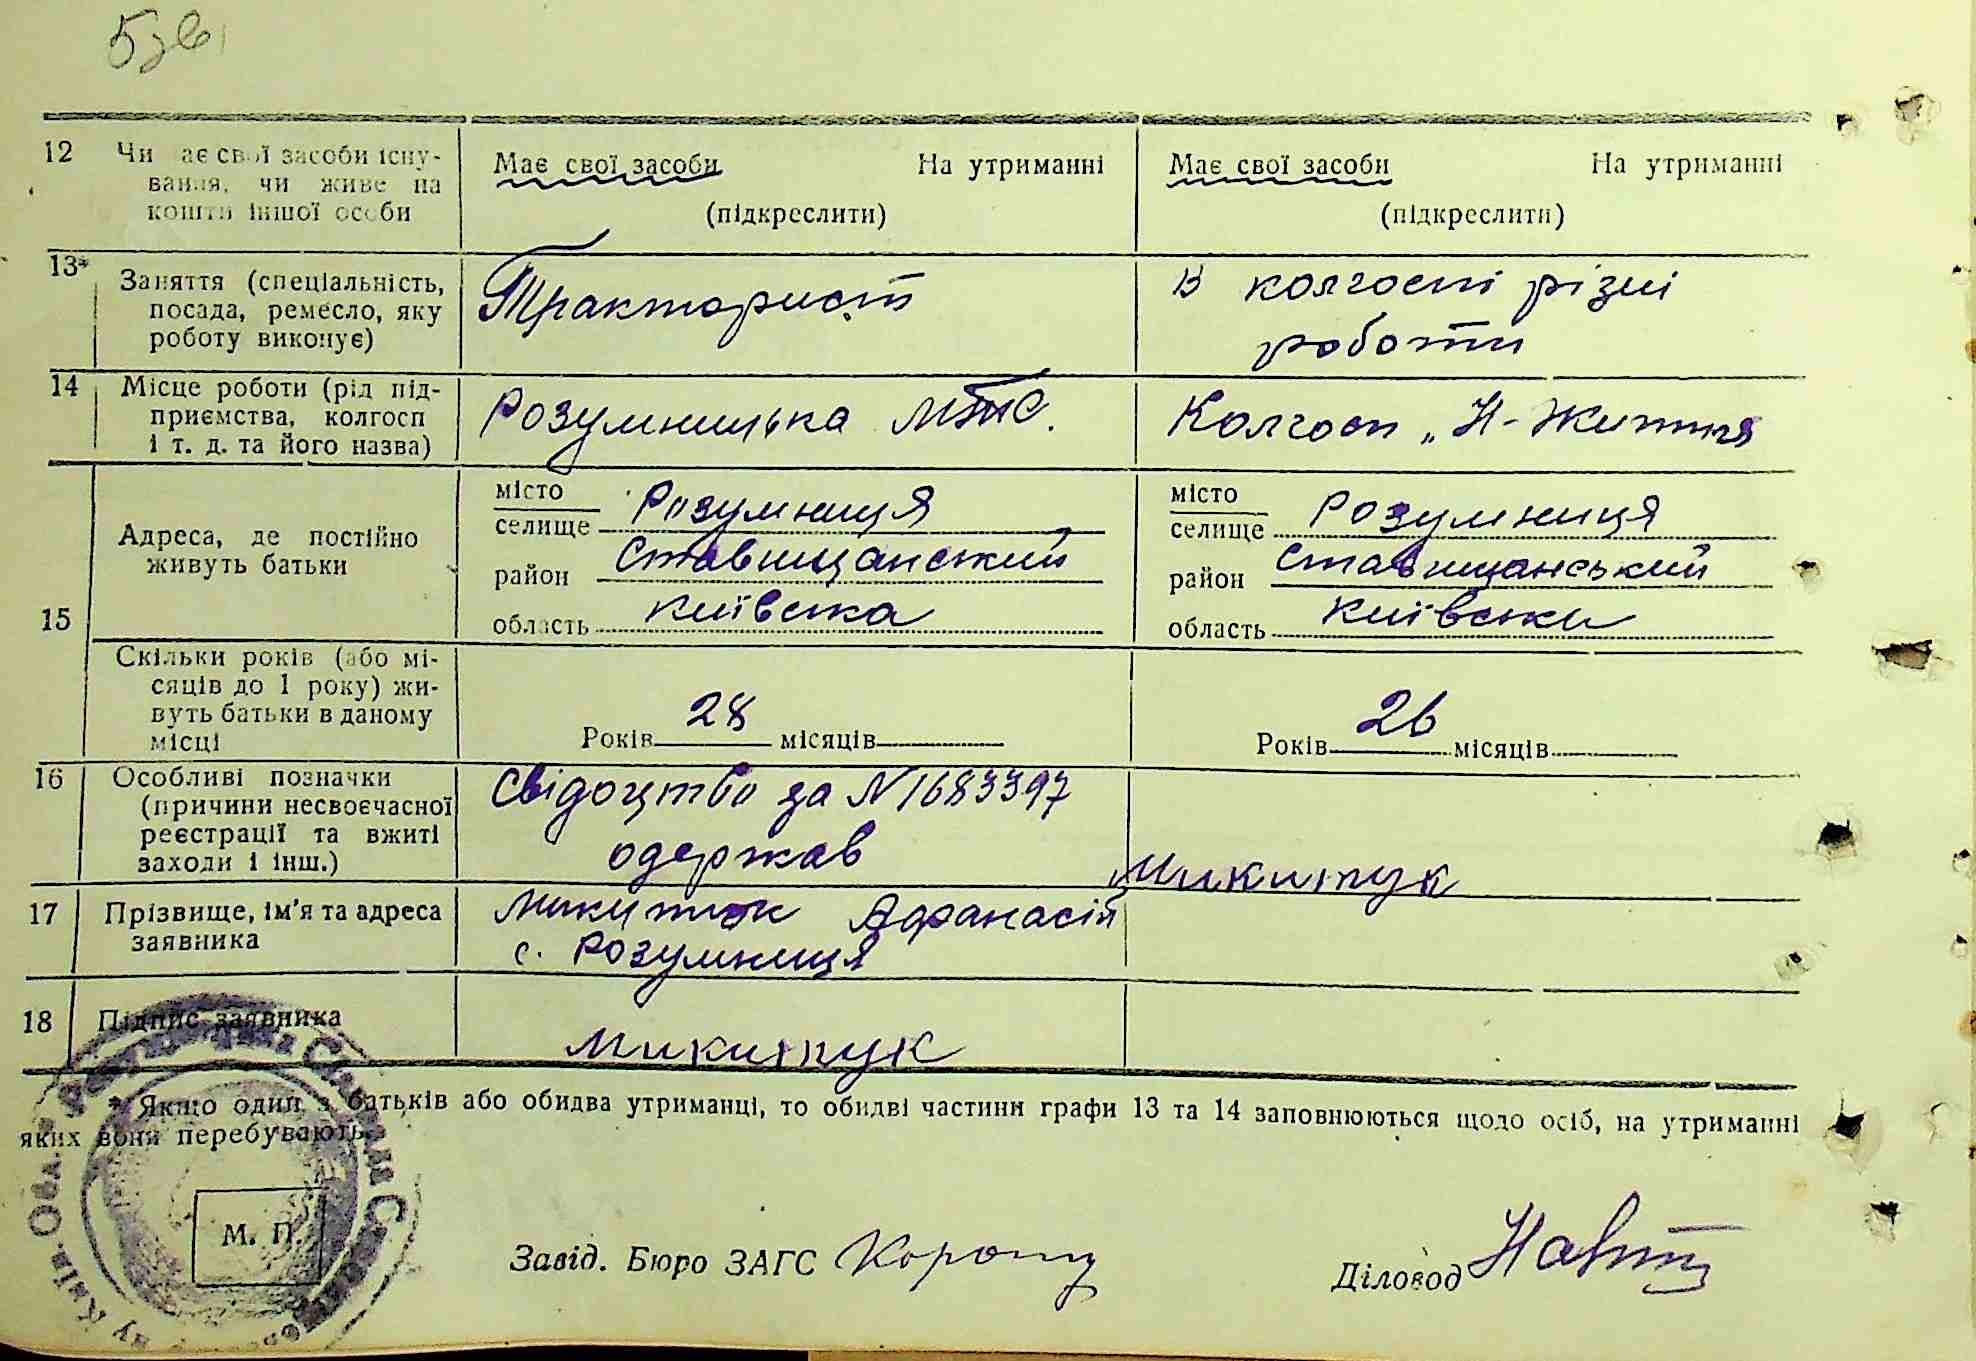 12 Чи має свої засоби існу-
вання, чи живе на
кошти іншої особи
Має свої засоби На утриманні
(підкреслити)
Має свої засоби На утриманні
(підкреслити)
13* Заняття (спеціальність,
посада, ремесло, яку
роботу виконує)
Тракторист
В колгоспі різні
роботи
14 Місце роботи (рід під-
приємства, колгосп
і т. д. та його назва)
Розумницька МТС.
Колгосп „Н-Життя
15
Адреса, де постійно
живуть батьки
місто
селище Розумниця
район Ставищанський
область Київська
місто
селище Розумниця
район Ставищанський
область Київська
Скільки років (або мі-
сяців до 1 року) жи-
вуть батьки в даному
місці
Років 28 місяців
Років 26 місяців
16 Особливі позначки
(причини несвоєчасної
реєстрації та вжиті
заходи і інш.)
Свідоцтво за N1683397
одержав Микитук
17 Прізвище, ім'я та адреса
заявника
Микитюк Афанасій
с. Розумниця
18 Підпис заявника
Микитук
* Якщо один з батьків або обидва утриманці, то обидві частини графи 13 та 14 заповнюються щодо осіб, на утриманні
яких вони перебувають.
М. П.
Завід. Бюро ЗАГС
Діловод